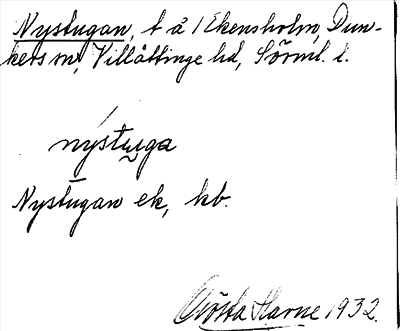 Nystugan, t å 1 Ekensholm, Dun-
kers sn, Villåttinge hd, Sörml. l.
nýstu̯ga
Nystugan ek, kb.
Gösta Harne 1932.